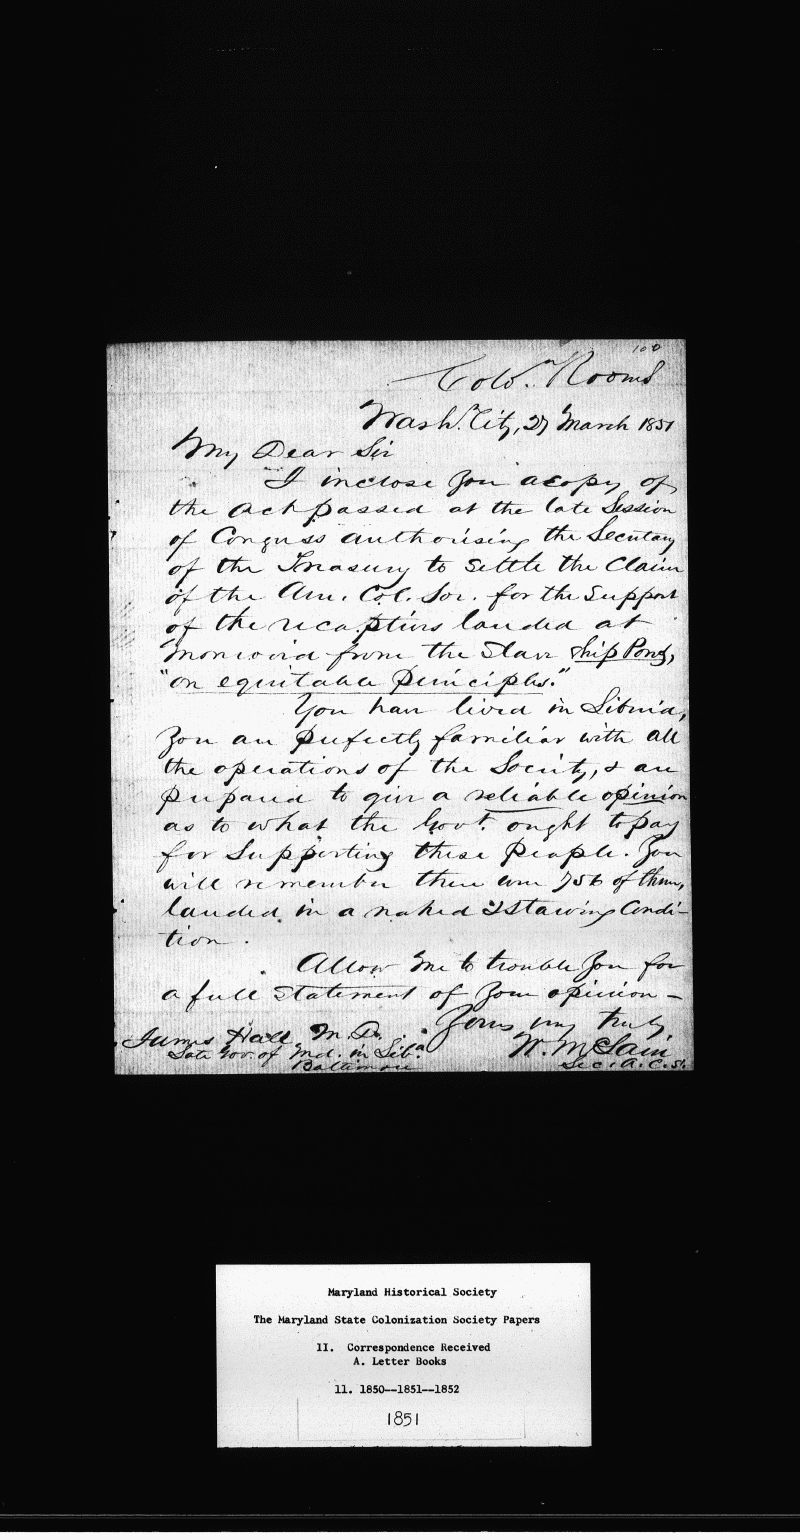 100
Colo. Rooms
Wash. City, 27 March 1851
My Dear Sir
I inclose you a copy of
the act passed at the late Session
of Congress authorising the Secretary
of the Treasury to settle the Claim
of the Am. Col. Soc. for the support
of the recaptives landed at
Monrovia from the Slave Ship Pons,
"on equitable principles."
You have lived in Liberia,
you are perfectly familiar with all
the operations of the Society, & are
prepared to give a reliable opinion
as to what the Govt. ought to pay
for supporting these people. You
will remember there were 756 of them,
landed in a naked & starving Condi-
tion.
Allow me to trouble you for
a full statement of your opinion –
Yours very truly
W. McLain
Sec. A. C. S.
James Hall M. D.
Late Gov. of Md. in Liba.
Baltimore
Maryland Historical Society
The Maryland State Colonization Society Papers
II. Correspondence Received
A. Letter Books
11. 1850--1851--1852
1851